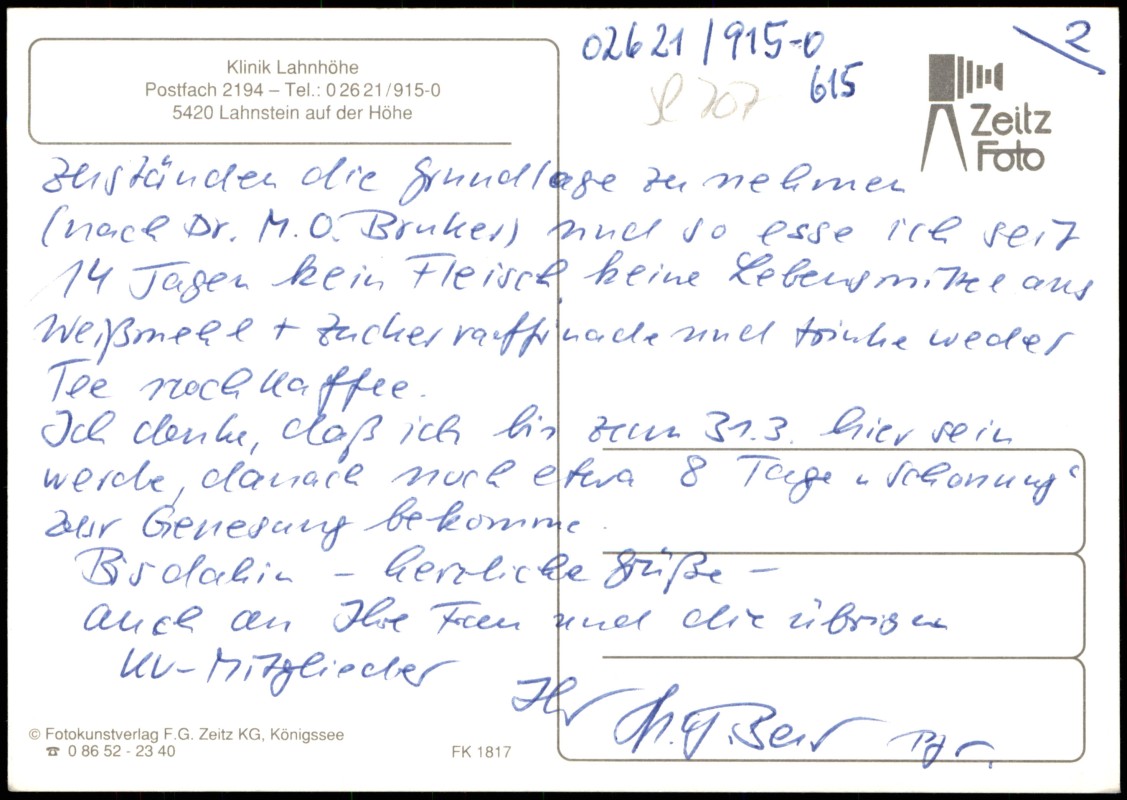 02621/915-0
615
2
Klinik Lahnhöhe
Postfach 2194 – Tel.: 0 26 21/915-0
5420 Lahnstein auf der Höhe
Zeitz
Foto
zuständen die Grundlage zu nehmen
(nach Dr. M. O. Bruker) und so esse ich seit
14 Tagen kein Fleisch keine Lebensmittel aus
Weißmehl + Zuckerraffinade und trinke weder
Tee noch Kaffee.
Ich denke, daß ich bis zum 31.3. hier sein
werde, danach noch etwa 8 Tage „Schonung“
zur Genesung bekomme.
Bis dahin – herzliche Grüße –
auch an Ihre Frau und die übrigen
KV-Mitglieder
Ihr
© Fotokunstverlag F.G. Zeitz KG, Königssee
☎ 0 86 52 - 23 40
FK 1817